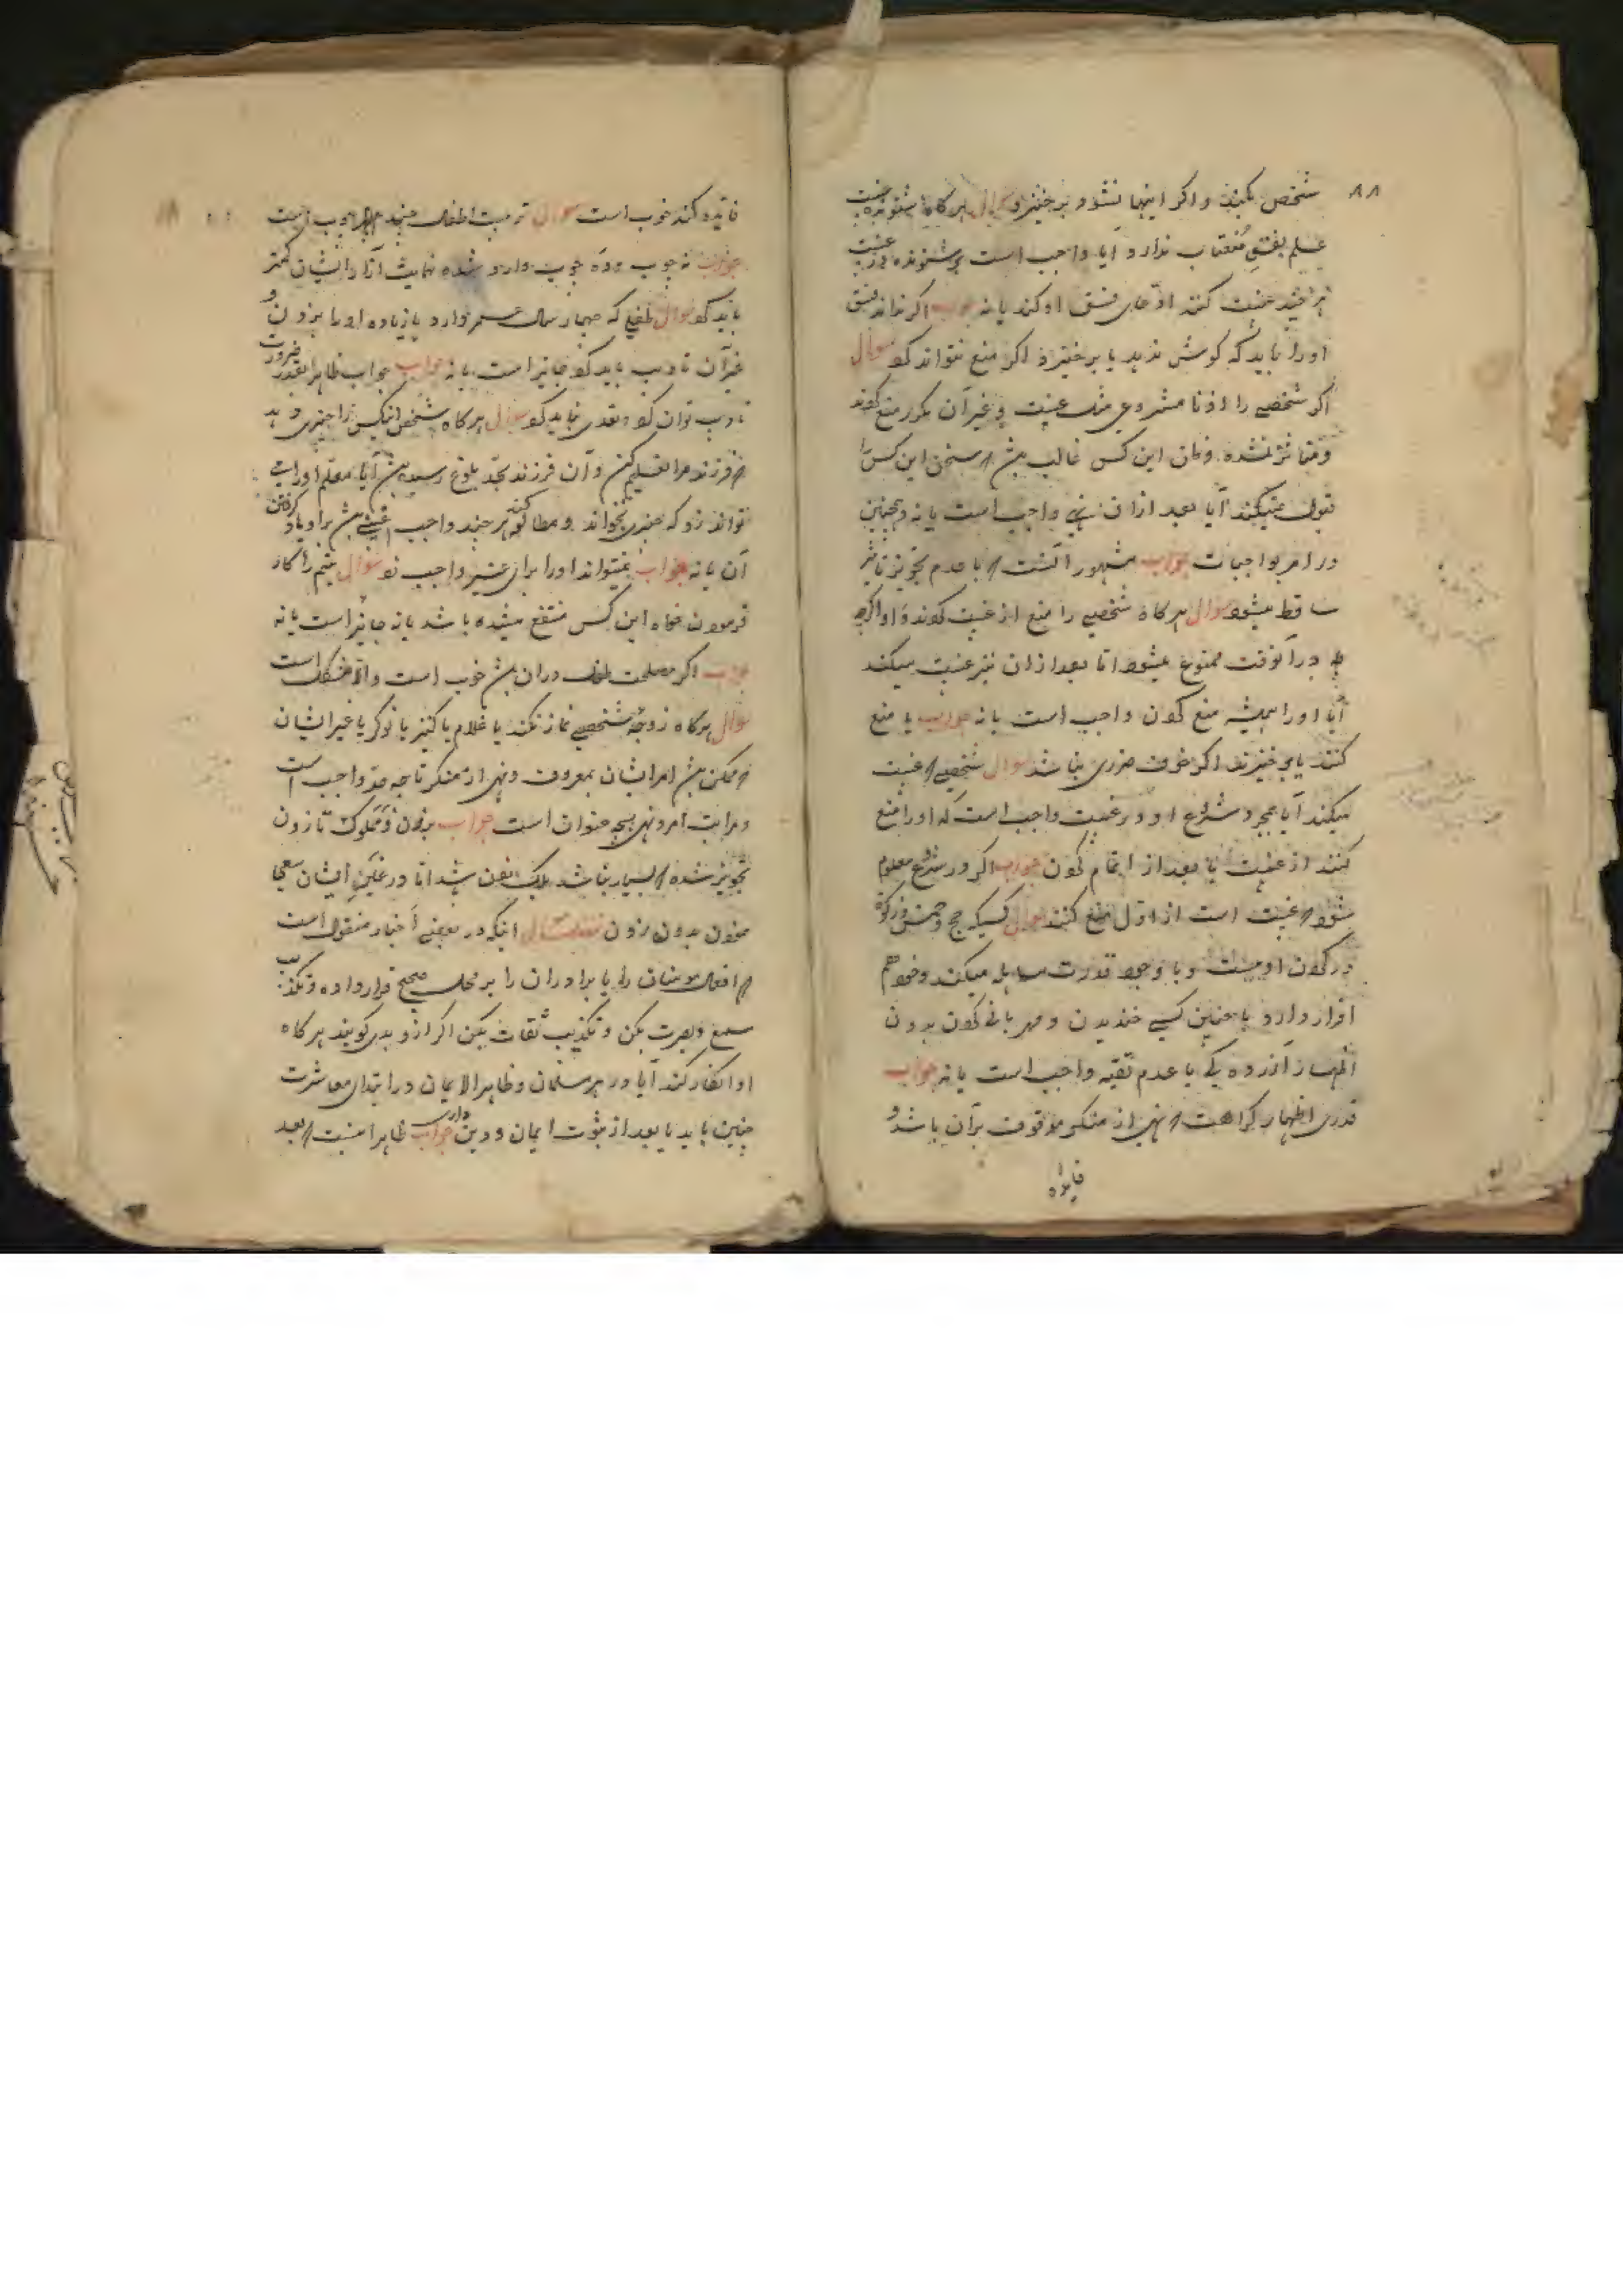 ۸۸
شخص بکیند و اگر اینها نشود برخیزد سوال هرگاه شنونده غیبت
علم بفسق مغتاب ندارد آیا واجب است بر شنونده
هر چند غیبت کننده ادعای فسق او کند یا نه جواب اگر نداند فسق
او را باید که گوش ندهد یا برخیزد اگر منع نتواند کرد سوال
اگر شخصی را از نامشروعی مثل غیبت و غیر آن مکرر منع کردند
و متأثر نشده و ظن این کس غالب باشد که سخن این کس را
قبول نمیکند آیا بعد از آن نهی واجب است یا نه و همچنین
در امر بواجبات جواب مشهور آنست که با عدم تجویز تاثیر
ساقط میشود سوال هرگاه شخصی را منع از غیبت کردند و او اگرچه
در آنوقت ممنوع میشود اما بعد از آن نیز غیبت میکند
آیا او را همیشه منع کردن واجب است یا نه جواب یا منع
کنند یا برخیزند اگر خوف ضرری نباشد سوال شخصی که غیبت
میکند آیا بمجرد شروع او در غیبت واجب است که او را منع
کنند از غیبت یا بعد از اتمام کردن جواب اگر در شروع معلوم
شود که غیبت است از اول منع کنند سوال کسیکه حج و خمس و زکوة
در گردن اوست و با وجود قدرت مساهله میکند و خود هم
اقرار دارد با چنین کسی خندیدن و مهربانی کردن بدون
اظهار آزرده گی با عدم تقیه واجب است یا نه جواب
قدری اظهار کراهت که نهی از منکر موقوف بر آن باشد و
فایده
فایده کند خوب است سوال تربیت اطفال
جواب نه چوب و ده چوب وارد شده نهایت آزار ایشان کمتر
باید کرد سوال طفلی که چهار سال عمر دارد یا زیاده او را بزدن و
غیر آن تادیب باید کرد جایز است یا نه جواب جواب ظاهرا بقدر ضرورت
تادیب توان کرد و تعدی نباید کرد سوال هرگاه شخصی اینکس را چیزی دهد
که فرزند مرا تعلیم کن و آن فرزند بحد بلوغ رسیده باشد آیا معلم او را
تواند زد که چیزی بخواند و مطالعه کند هر چند واجب عینی باشد بر او یاد گرفتن
آن یا نه جواب نمیتواند او را برای غیر واجب زد سوال یتیم را کار
فرمودن خواه این کس منتفع میشده باشد یا نه جایز است یا نه
جواب اگر مصلحت طفل در آن باشد خوب است و الا مشکل است
سوال هرگاه زوجه شخصی نماز نکند یا غلام یا کنیز یا نوکر یا غیر ایشان
که ممکن باشد امر ایشان بمعروف و نهی از منکر تا چه حد واجب است
و مراتب امر و نهی بچه عنوان است جواب بزدن و مملوک تا زدن
تجویز شده که بسیار نباشد اما در غیر ایشان سعی
نمودن بدون زدن اینکه در بعضی اخبار منقول است
که افعال مومنان را یا برادران را بر محمل صحیح قرار داده و تکذیب
سمع و بصرت بکن و تکذیب ثقات بکن اگر از او بدی گویند هرگاه
او انکار کند آیا در هر مسلمان و ظاهر الایمان در ابتدای معاشرت
چنین باید یا بعد از ثبوت ایمان و دین داری جواب ظاهرا اینست که بعد